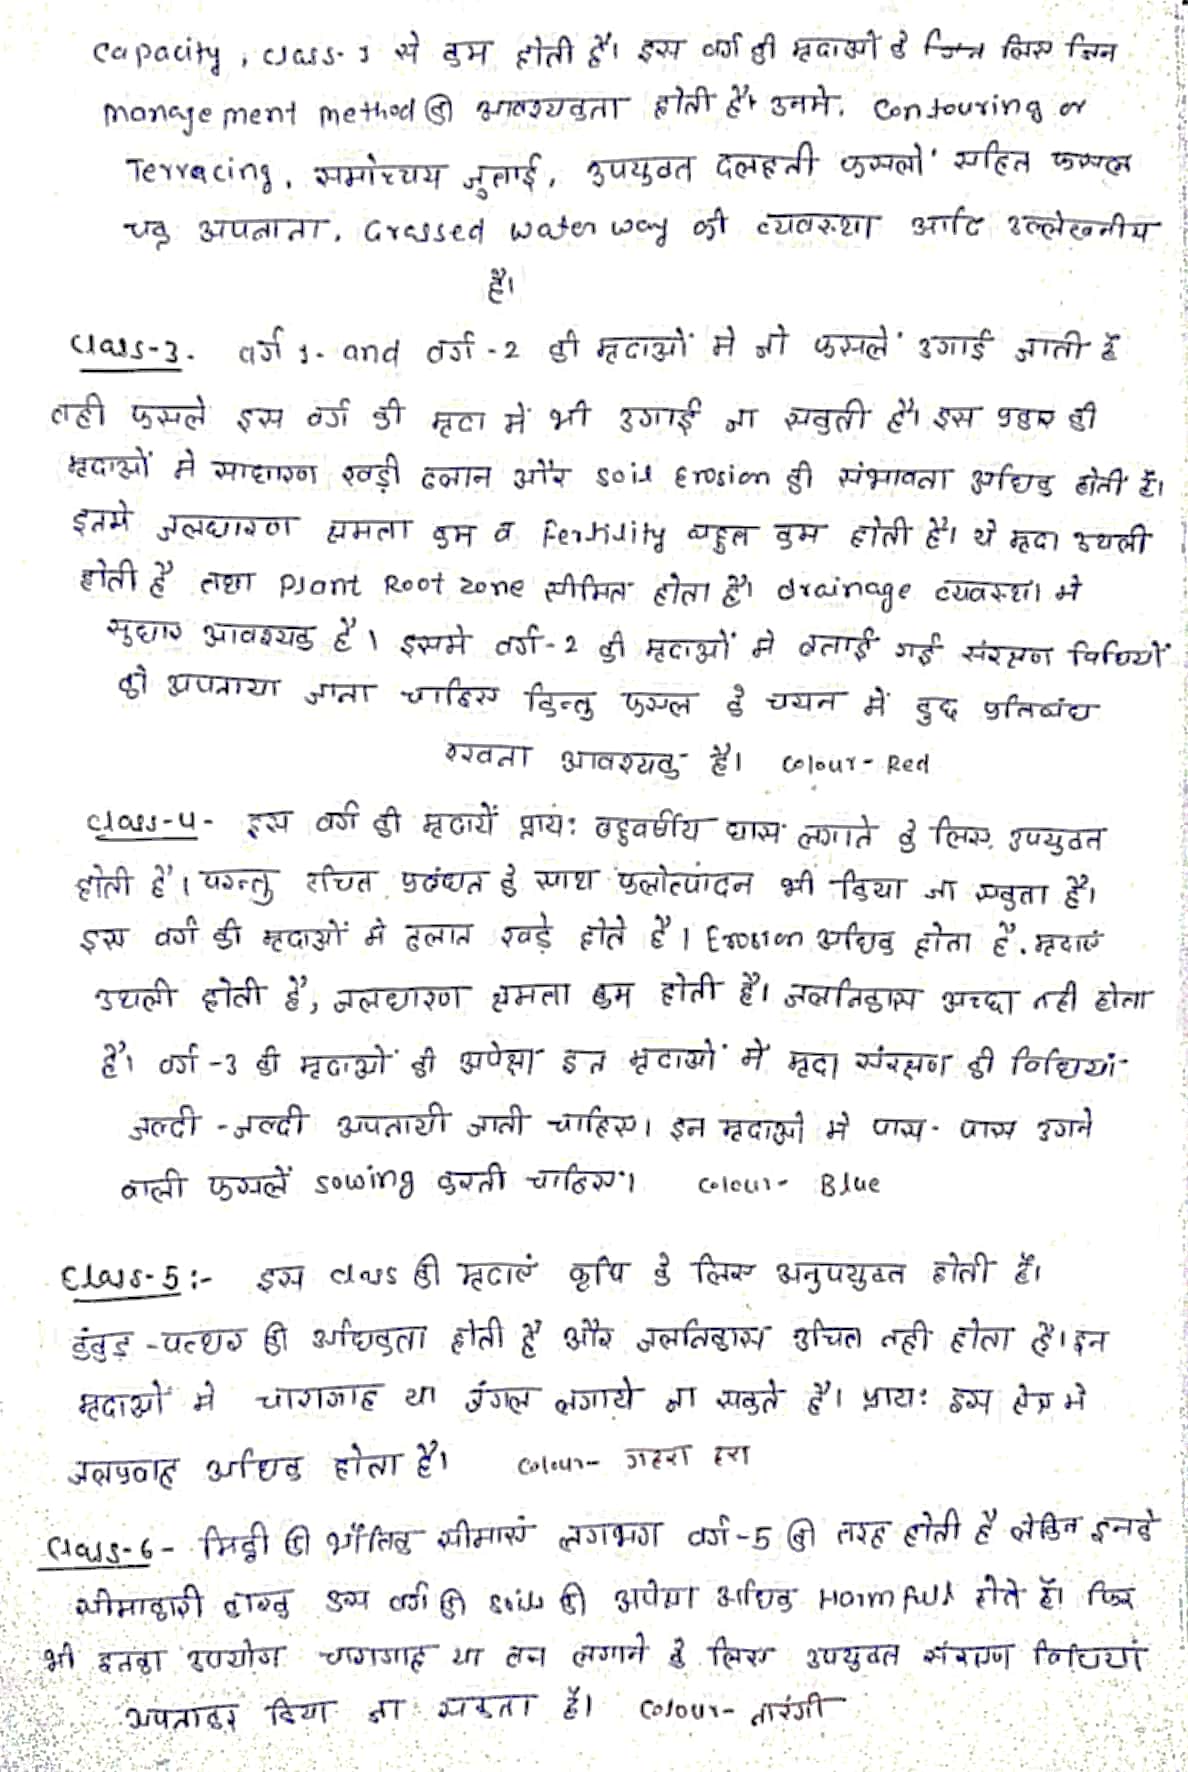 Capacity, class-1 से कम होती है। इस वर्ग की मृदाओं के लिए जिन
management method की आवश्यकता होती है। उनमे, Contouring or
Terracing, समोच्चय जुताई, उपयुक्त दलहनी फसलों सहित फसल
चक्र अपनाना, Grassed water way की व्यवस्था आदि उल्लेखनीय
है।
Class-3. वर्ग 1. and वर्ग -2 की मृदाओं मे जो फसलें उगाई जाती हैं
वही फसले इस वर्ग की मृदा में भी उगाई जा सकती है। इस प्रकार की
मृदाओं मे साधारण खड़ी ढलान और Soil Erosion की संभावना अधिक होती है।
इनमे जलधारण क्षमता कम व Fertility बहुत कम होती है। ये मृदा उथली
होती है तथा Plant Root zone सीमित होता है। drainage व्यवस्था मे
सुधार आवश्यक है। इसमे वर्ग-2 की मृदाओं मे बताई गई संरक्षण विधियों
को अपनाया जाना चाहिए किन्तु फसल के चयन में कुछ प्रतिबंध
रखना आवश्यक है। Colour- Red
Class-4- इस वर्ग की मृदायें प्रायः बहुवर्षीय घास लगाने के लिए, उपयुक्त
होती है। परन्तु उचित प्रबंधन के साथ फलोत्पादन भी किया जा सकता है।
इस वर्ग की मृदाओं मे ढलान खड़े होते है। Erosion अधिक होता है. मृदाएं
उथली होती है, जलधारण क्षमता कम होती है। जलनिकास अच्छा नही होता
है। वर्ग -3 की मृदाओं की अपेक्षा इन मृदाओं में मृदा संरक्षण की विधियां
जल्दी -जल्दी अपनायी जानी चाहिए। इन मृदाओ मे पास- पास उगने
वाली फसलें sowing करनी चाहिए। Colour- Blue
Class-5:- इस class की मृदाएं कृषि के लिए अनुपयुक्त होती हैं।
कंकड़ -पत्थर की अधिकता होती है और जलनिकास उचित नही होता है। इन
मृदाओं मे चारागाह या जंगल लगाये जा सकते है। प्रायः इस क्षेत्र मे
जलप्रवाह अधिक होता है। Colour- गहरा हरा
Class-6- मिट्टी की भौतिक सीमाएं लगभग वर्ग -5 की तरह होती है लेकिन इनके
सीमाकारी कारक इस वर्ग की soils की अपेक्षा अधिक Harmfull होते हैं। फिर
भी इनका उपयोग चारागाह या वन लगाने के लिए उपयुक्त संरक्षण विधियां
अपनाकर किया जा सकता है। Colour- नारंगी